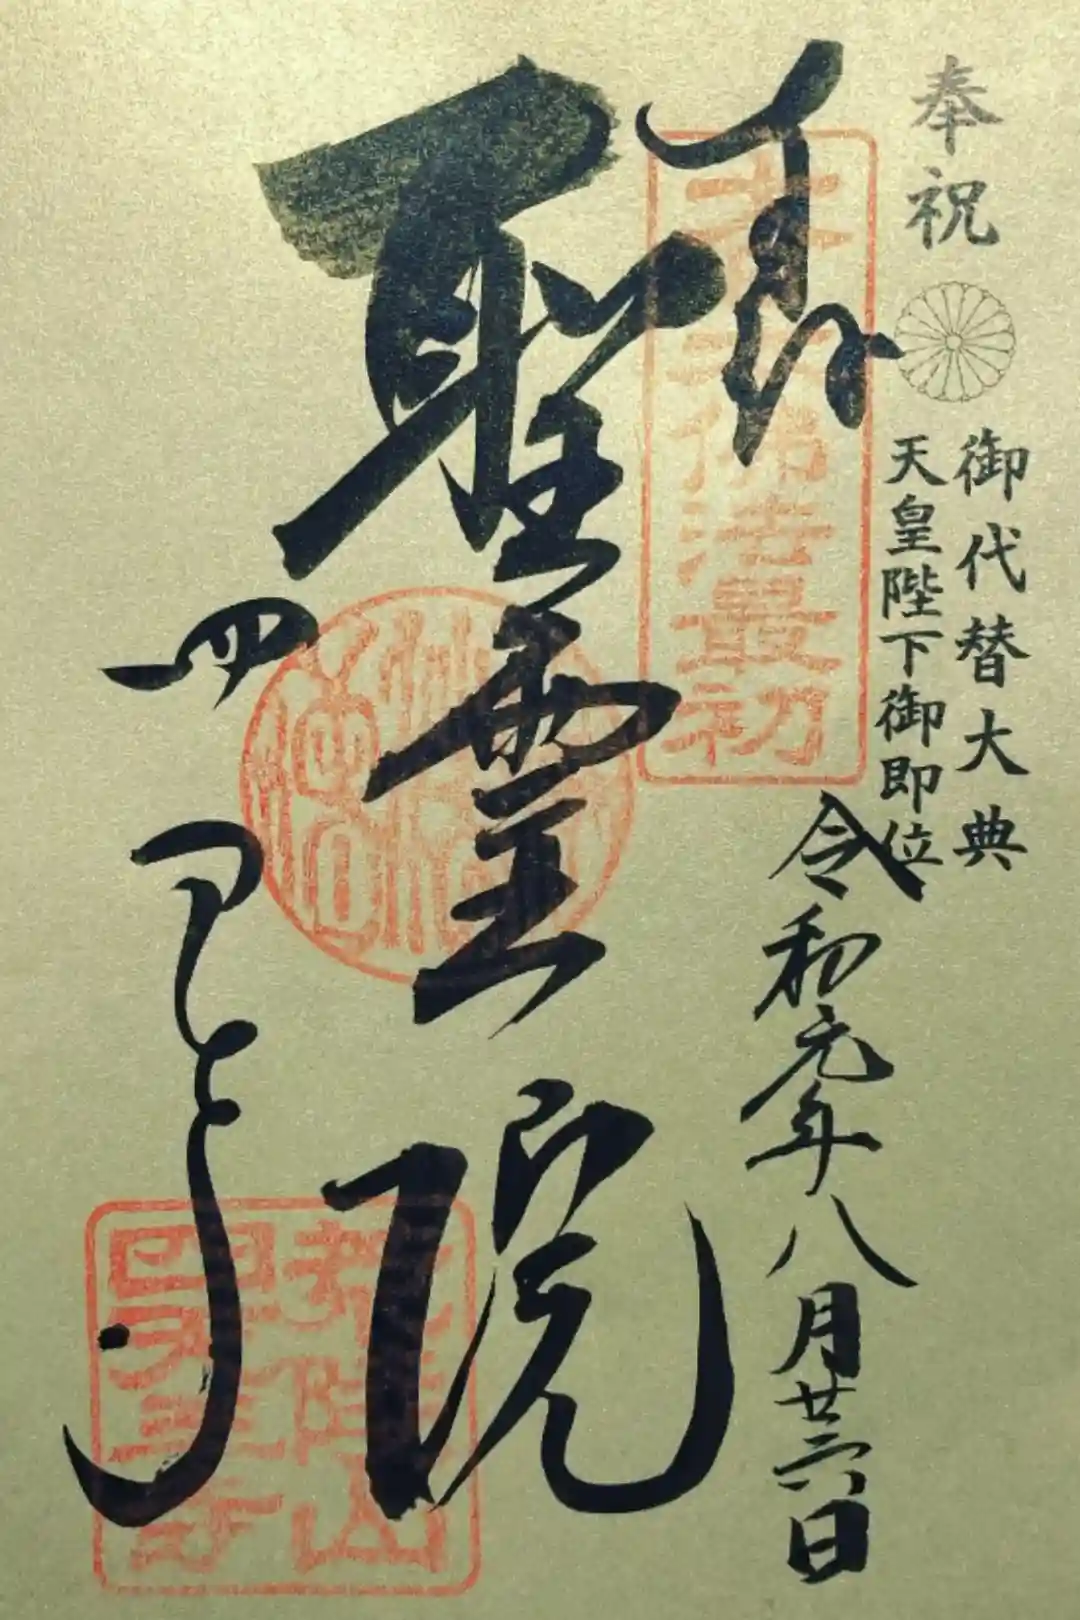 奉祝
御代替大典
天皇陛下御即位
令和元年八月廿六日
奉拝
佛法最初
聖霊院
四天王寺
荒陵山
四天王寺